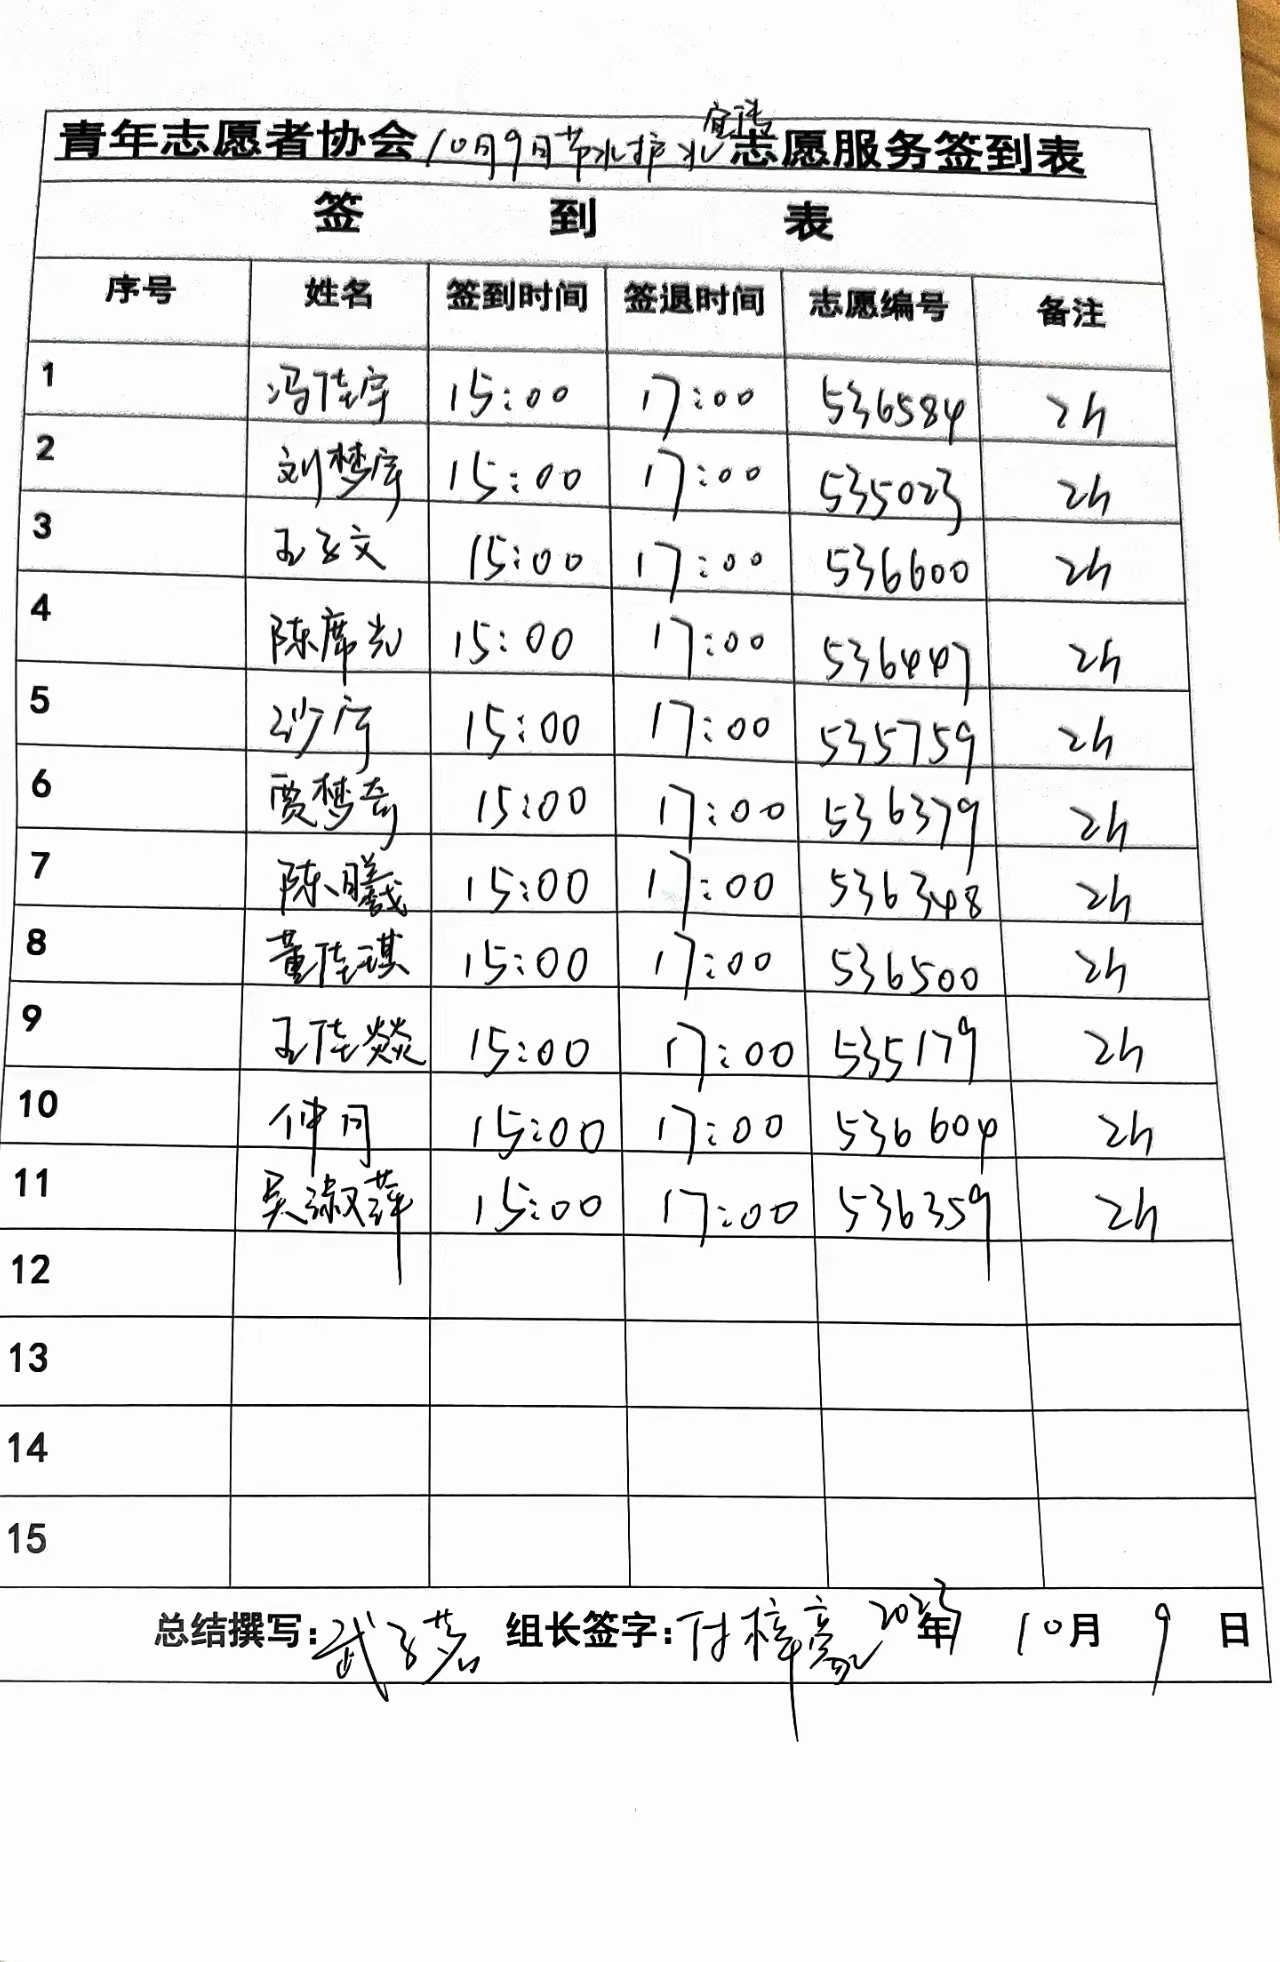 青年志愿者协会10月9日节水护水宣讲志愿服务签到表
签 到 表
序号 姓名 签到时间 签退时间 志愿编号 备注
1 冯佳宇 15:00 17:00 536584 2h
2 刘梦宇 15:00 17:00 535023 2h
3 王子文 15:00 17:00 536600 2h
4 陈席光 15:00 17:00 536447 2h
5 15:00 17:00 535759 2h
6 贾梦奇 15:00 17:00 536379 2h
7 陈曦 15:00 17:00 536348 2h
8 董佳琪 15:00 17:00 536500 2h
9 王佳燚 15:00 17:00 535179 2h
10 仲月 15:00 17:00 536604 2h
11 吴淑萍 15:00 17:00 536359 2h
12
13
14
15
总结撰写:武子茗 组长签字:付梓豪 2023年 10月 9 日